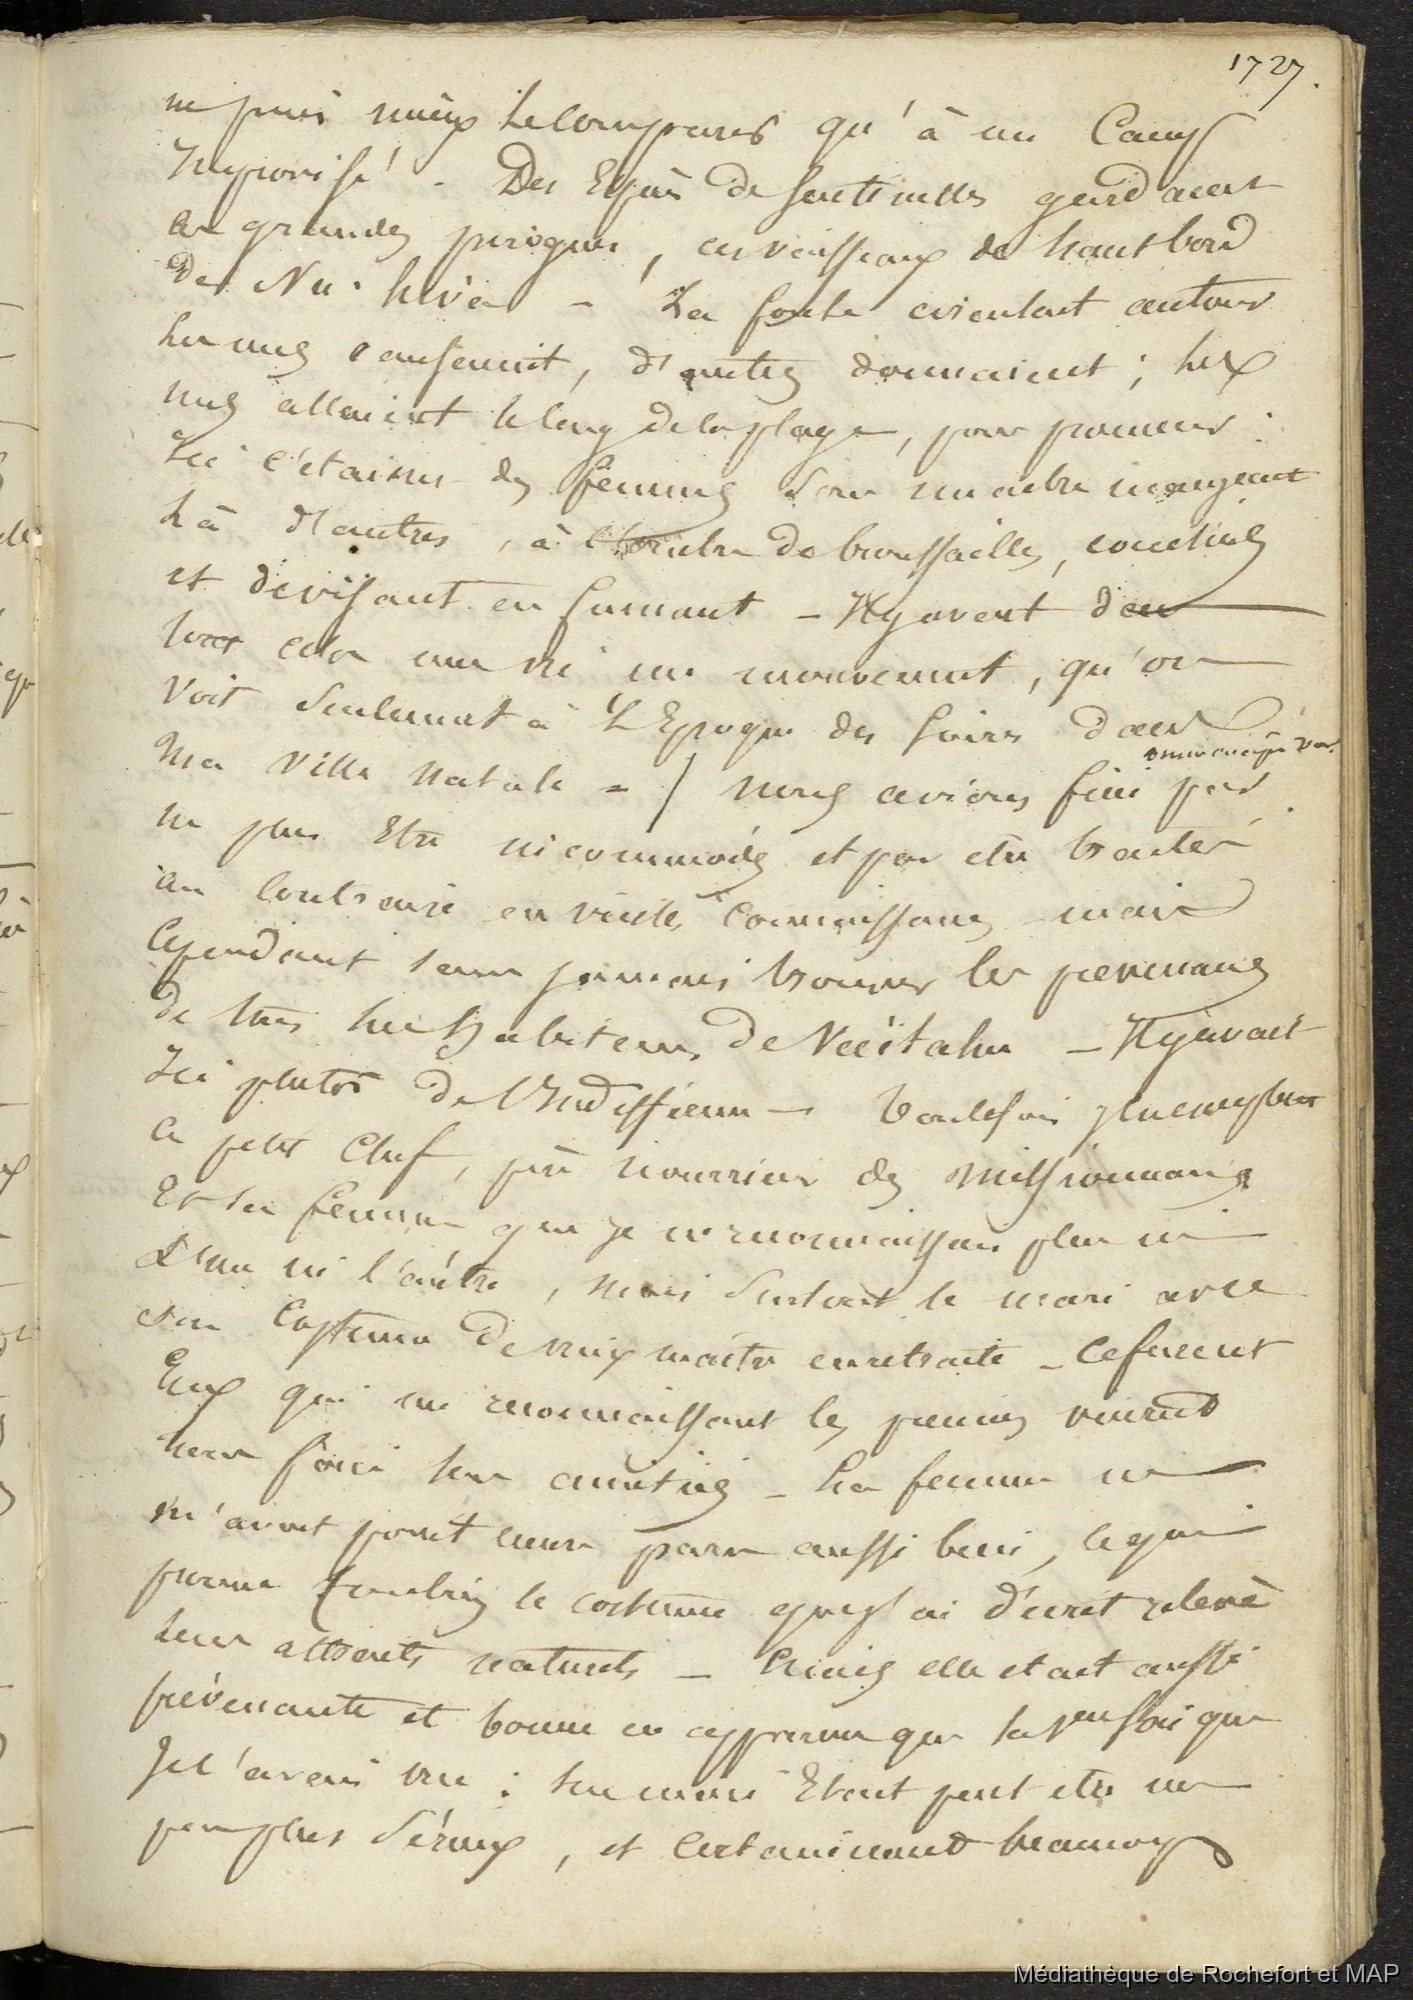 1727.
ne puis mieux le comparer qu'à un Camp
Improvisé. Des Espèces de sentinelles gardaient
les grandes pirogues, ces vaisseaux de haut bord
des Nu-hivien - La foule circulant autour
les uns causaient, d'autres dormaient; les
uns allaient le long de la plage, pour promener.
Ici c'étaient des femmes sous un arbre mangeant
Là d'autres, à l'ombre de broussailles, couchées
et devisant en fumant - Il y avait dans
tout cela une vie un mouvement, qu'on
voit seulement à L'Epoque des foires dans
Ma ville natale = / nous avions fini par
ne plus Etre incommodés et par etre traités
au contraire en vieilles connaissances - mais
Cependant sans jamais trouver les prévenances
de tous les habitans de Vaitahu - Il y avait
Ici plutôt de l'Indifférence - Toutefois j'en excepterai
ce petit Chef, père nourricier des Missionnaires
Et sa femme que je ne reconnaissais plus ni
L'une ni l'autre, mais surtout le mari avec
son Costume de vieux maître en retraite - Ce furent
Eux qui me reconnaissant les premiers vinrent
nous faire leur amitiés - La femme ne
m'avait point encore paru aussi bien, ce qui
prouve combien le costume que j'ai décrit relève
leur attraits naturels - Mais elle etait aussi
prévenante et bonne en apparence que la 1ere fois que
Je l'avais vue : son mari Etait peut etre un
peu plus sérieux, et certainement beaucoup
Médiathèque de Rochefort et MAP